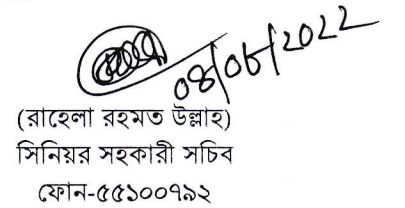 (রাহেলা রহমত উল্লাহ)
সিনিয়র সহকারী সচিব
ফোন-৫৫১০০৭৯২